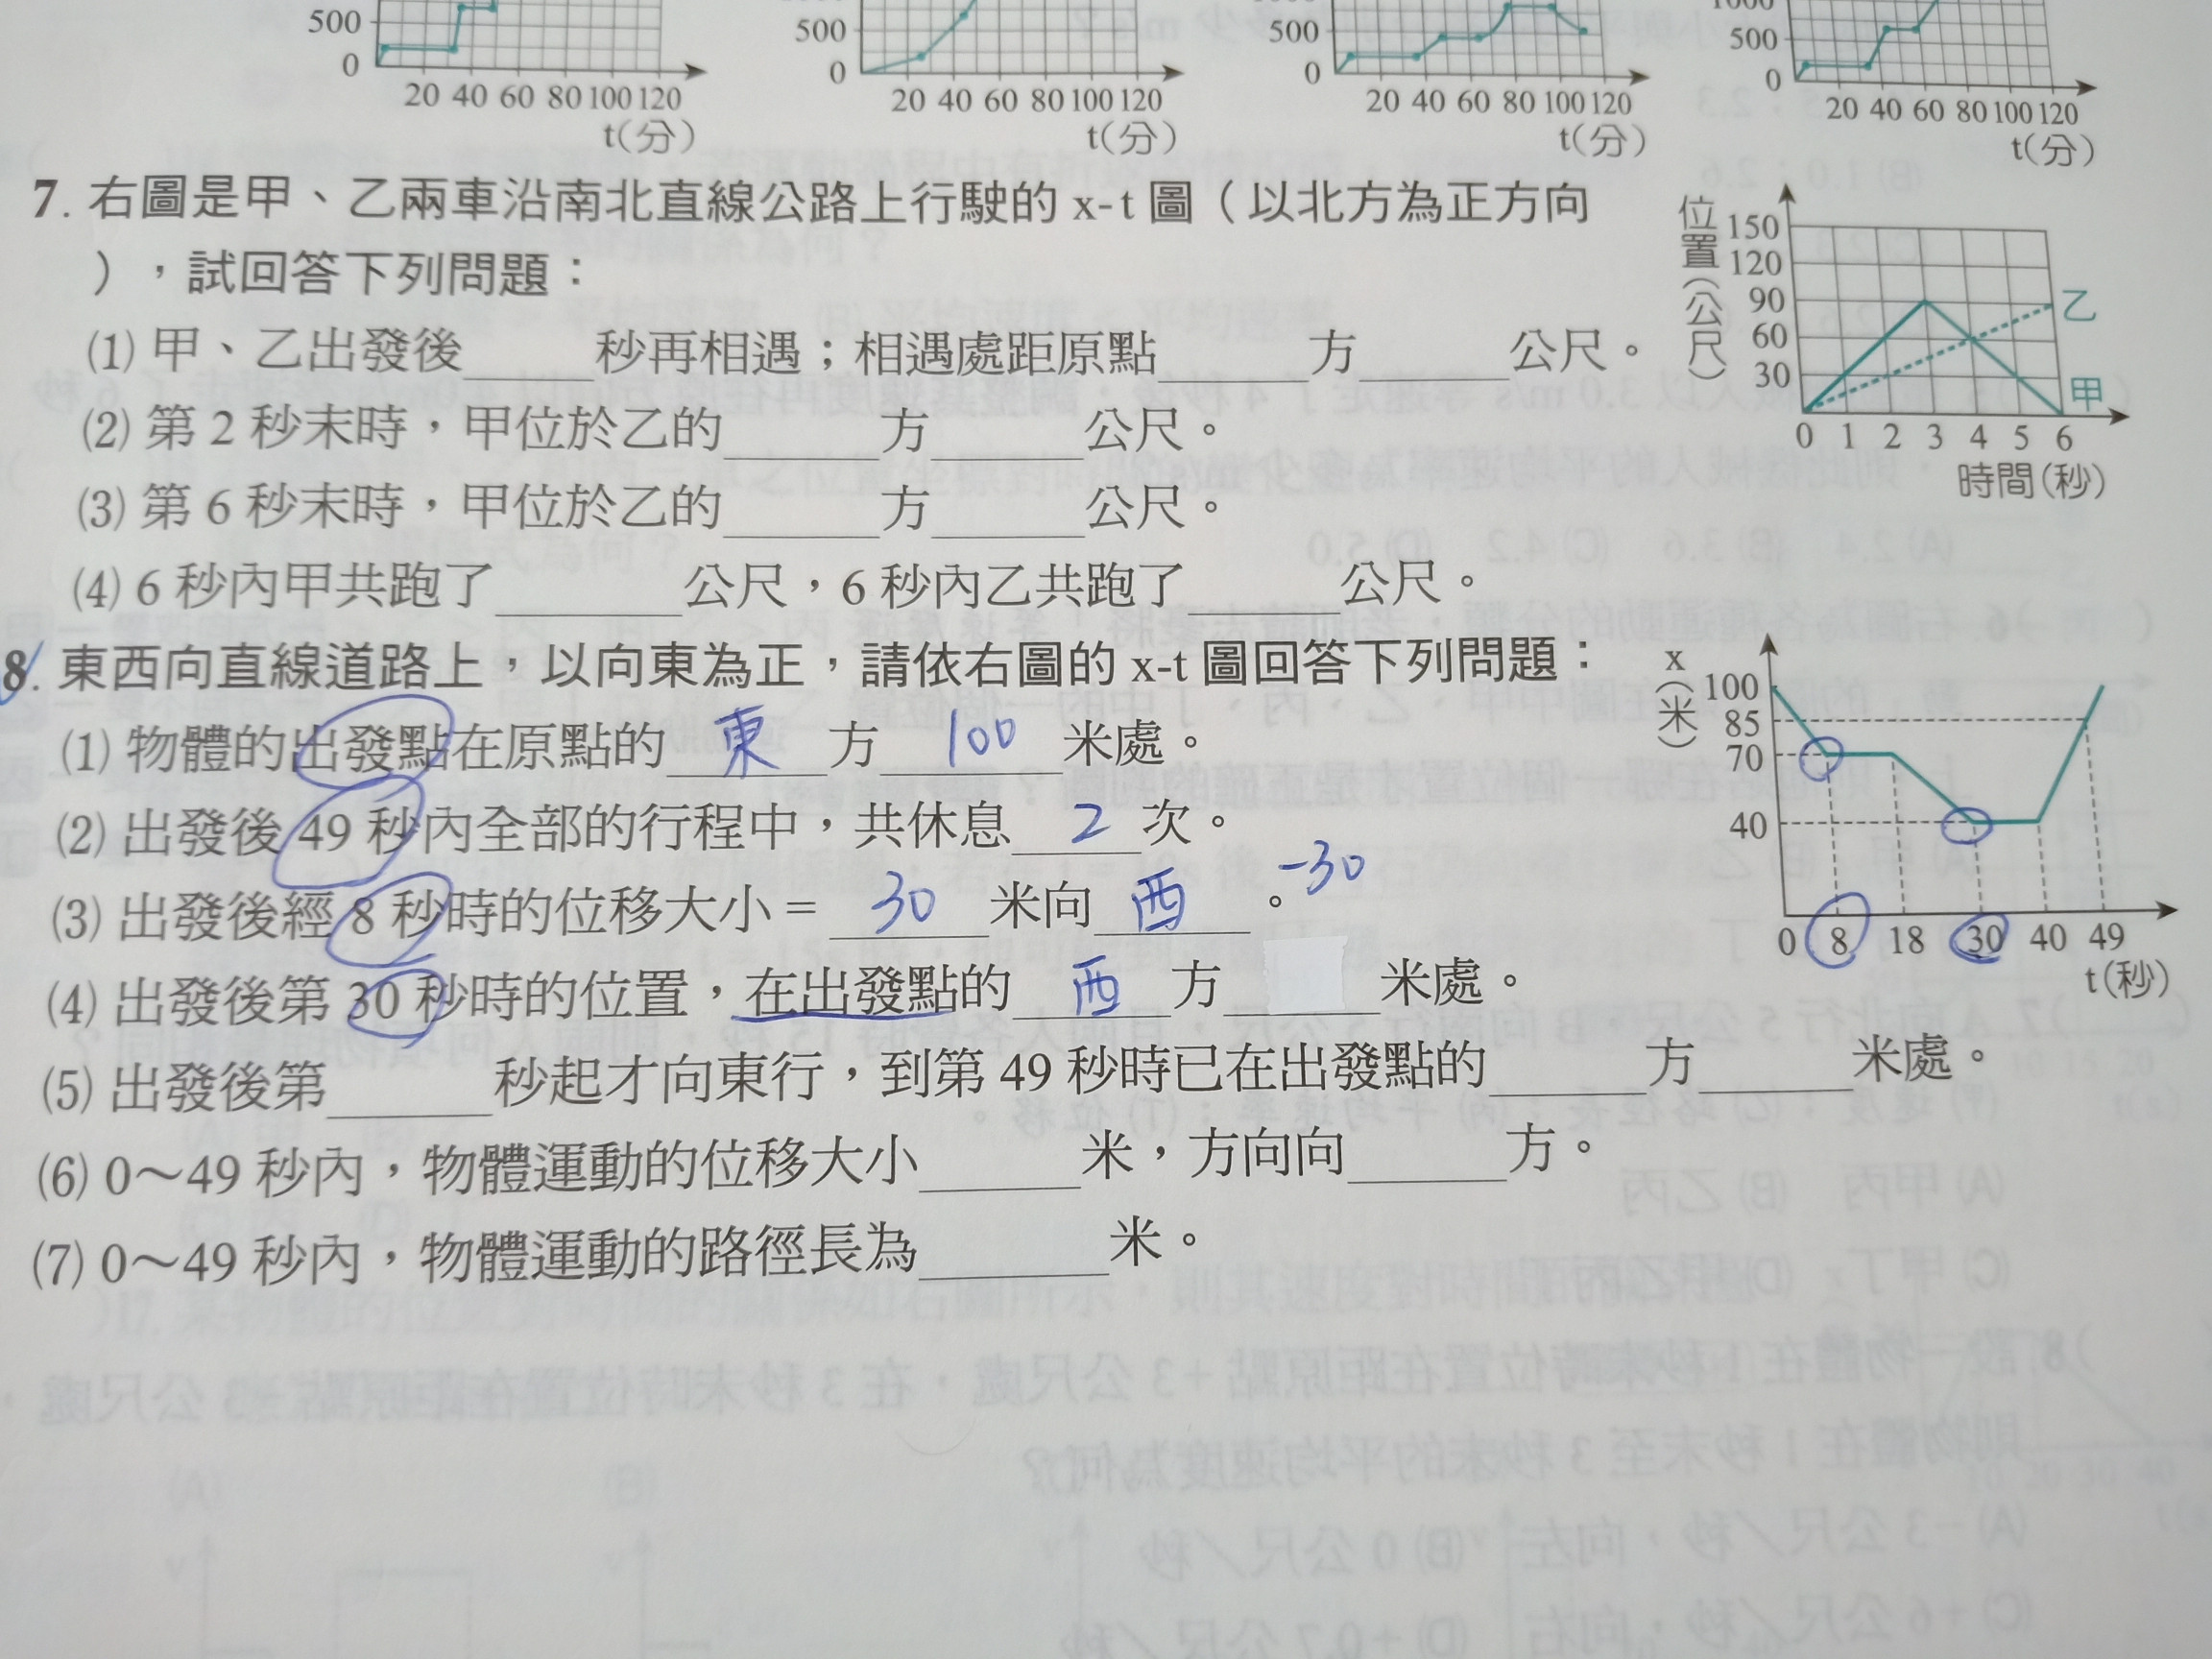 500
0
20 40 60 80 100 120
t(分)
500
0
20 40 60 80 100 120
t(分)
500
0
20 40 60 80 100 120
t(分)
1000
500
0
20 40 60 80 100 120
t(分)
7. 右圖是甲、乙兩車沿南北直線公路上行駛的 x-t 圖（以北方為正方向
），試回答下列問題：
(1) 甲、乙出發後______秒再相遇；相遇處距原點______方______公尺。
(2) 第 2 秒末時，甲位於乙的______方______公尺。
(3) 第 6 秒末時，甲位於乙的______方______公尺。
(4) 6 秒內甲共跑了______公尺，6 秒內乙共跑了______公尺。
位置(公尺)
150
120
90
60
30
乙
甲
0 1 2 3 4 5 6
時間(秒)
8. 東西向直線道路上，以向東為正，請依右圖的 x-t 圖回答下列問題：
(1) 物體的出發點在原點的 東 方 100 米處。
(2) 出發後 49 秒內全部的行程中，共休息 2 次。
(3) 出發後經 8 秒時的位移大小＝ 30 米向 西 。 -30
(4) 出發後第 30 秒時的位置，在出發點的 西 方______米處。
(5) 出發後第______秒起才向東行，到第 49 秒時已在出發點的______方______米處。
(6) 0～49 秒內，物體運動的位移大小______米，方向向______方。
(7) 0～49 秒內，物體運動的路徑長為______米。
x(米)
100
85
70
40
0 8 18 30 40 49
t(秒)